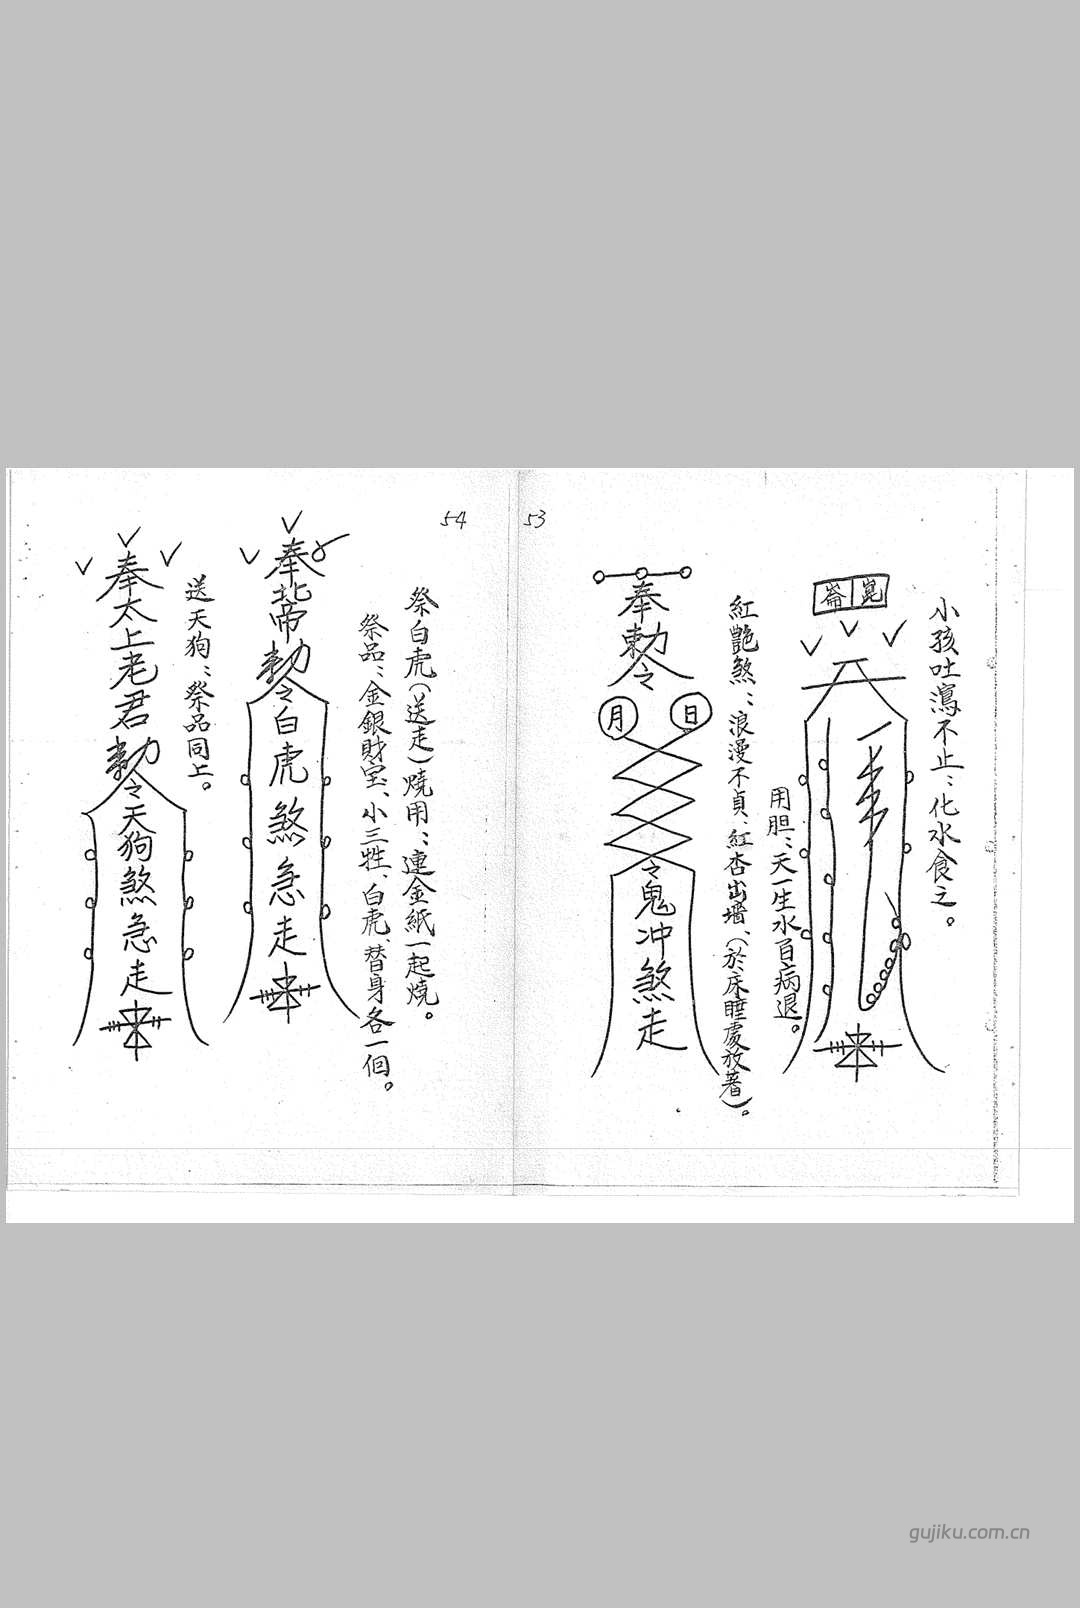 53
小孩吐瀉不止：化水食之。
崑崙
用胆：天一生水百病退。
紅艷煞：浪漫不貞、紅杏出墻、（於床睡處放著）。
奉勅令
日
月
令鬼冲煞走
54
祭白虎（送走）燒用：連金紙一起燒。
祭品：金銀財宝、小三牲、白虎、替身各一個。
奉北帝勅令白虎煞急走
送天狗：祭品同上。
奉太上老君勅令天狗煞急走
gujiku.com.cn